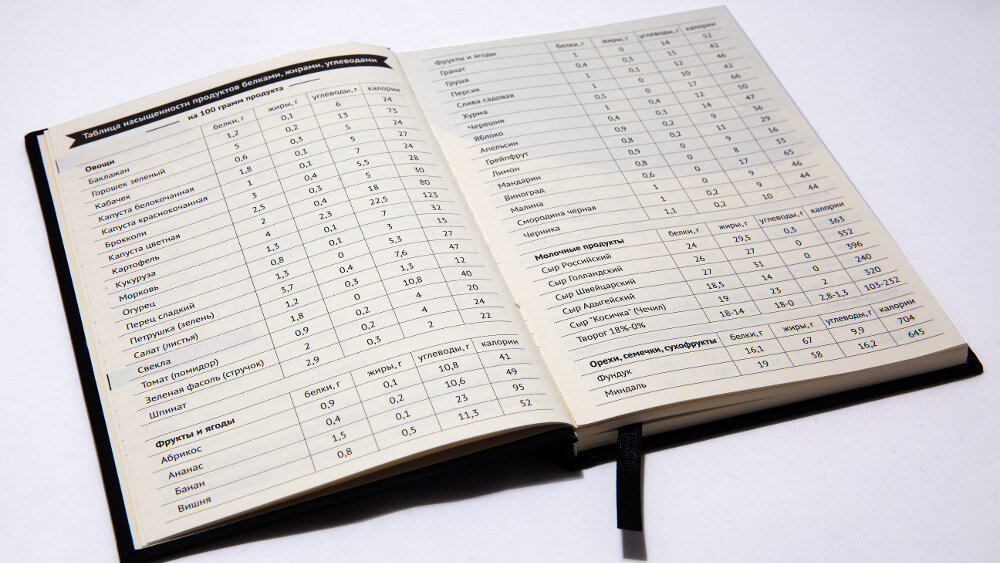 Таблица насыщенности продуктов белками, жирами, углеводами
на 100 грамм продукта
Овощи белки, г жиры, г углеводы, г калории
Баклажан 1,2 0,1 6 24
Горошек зеленый 5 0,2 13 73
Кабачек 0,6 0,3 5 24
Капуста белокочанная 1,8 0,1 5 27
Капуста краснокочанная 1 24
Брокколи 3 0,4 7 28
Капуста цветная 2,5 0,3 5,5 30
Картофель 2 0,4 18 80
Кукуруза 4 2,3 22,5 123
Морковь 1,3 0,1 7 32
Огурец 0,8 0,1 3 15
Перец сладкий 1,3 0 5,3 27
Петрушка (зелень) 3,7 0,4 7,6 47
Салат (листья) 1,2 1,3 12
Свекла 1,8 0 10,8 40
Томат (помидор) 0,9 0,2 4 20
Зеленая фасоль (стручок) 2 0,2 4 24
Шпинат 2,9 0,3 2 22
Фрукты и ягоды белки, г жиры, г углеводы, г калории
Абрикос 0,9 0,1 10,8 41
Ананас 0,4 0,2 10,6 49
Банан 1,5 0,1 23 95
Вишня 0,8 0,5 11,3 52
Фрукты и ягоды белки, г жиры, г углеводы, г калории
Гранат 1 0 14 52
Груша 0,4 0,3 42
Персик 1 0,1 46
Слива садовая 42
Хурма 0,5 0 17 66
Черешня 1 0,4 12 50
Яблоко 0,4 47
Апельсин 0,9 0,2 36
Грейпфрут 29
Лимон 16
Мандарин 0,8 33
Виноград 0,6 0 17 65
Малина 46
Смородина черная 1 0,2 9 44
Черника 1,1 0,2 10 44
Молочные продукты белки, г жиры, г углеводы, г калории
Сыр Российский 24 29,5 0,3 363
Сыр Голландский 26 27 0 352
Сыр Швейцарский 27 31 0 396
Сыр Адыгейский 18,5 14 0 240
Сыр "Косичка" (Чечил) 19 23 2 320
Творог 18%-0% 18-14 18-0 2,8-1,3 103-232
Орехи, семечки, сухофрукты белки, г жиры, г углеводы, г калории
Фундук 16,1 67 9,9 704
Миндаль 19 58 16,2 645